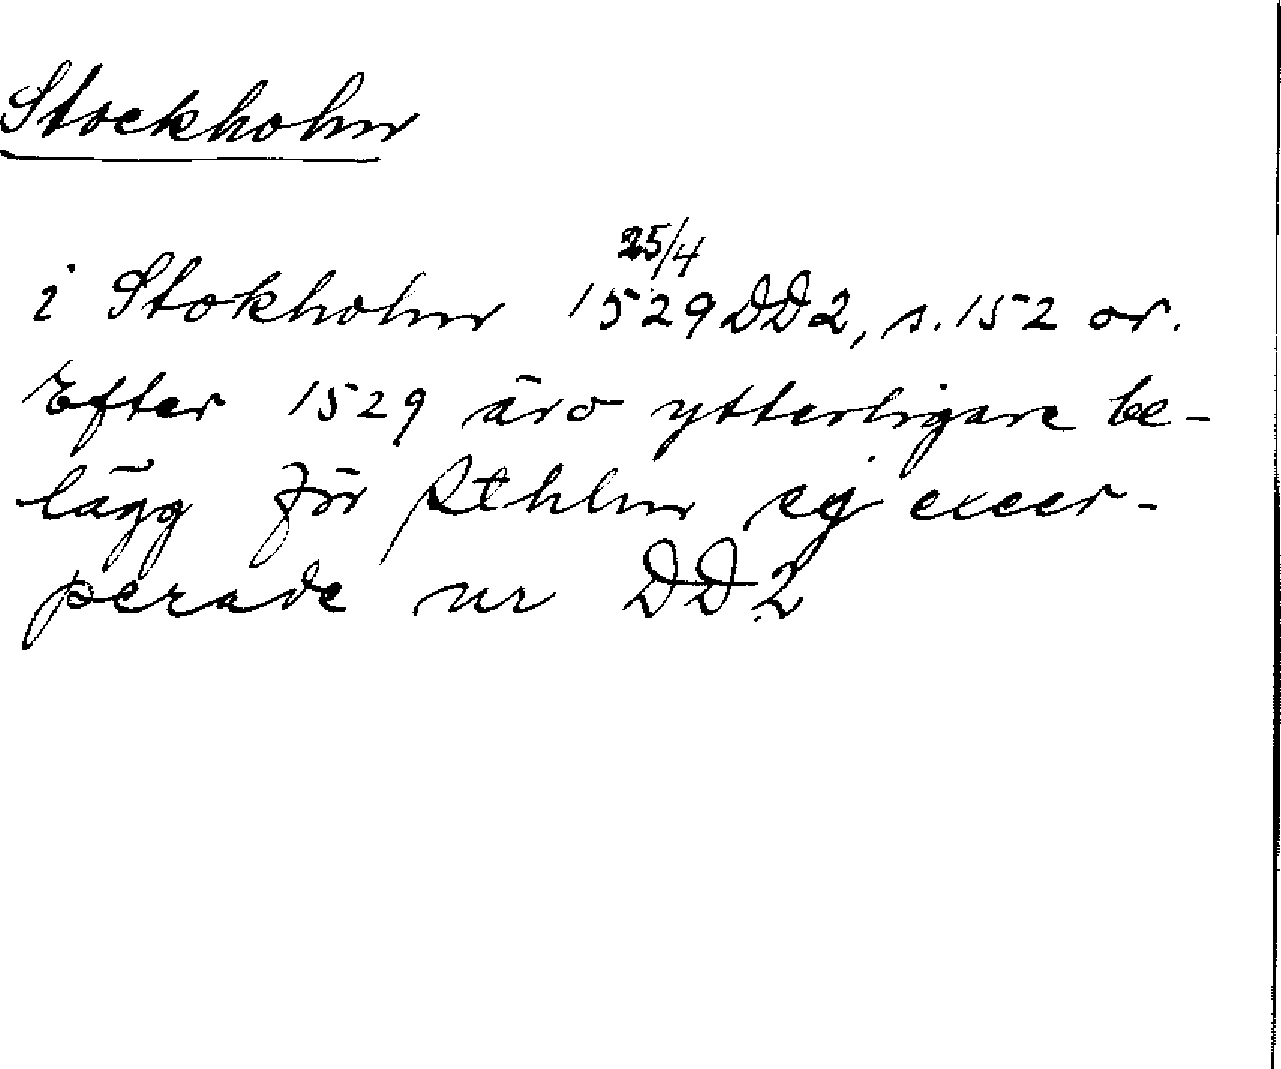 Stockholm
i Stokholm 1529 25/4 DD2, s. 152 or.
Efter 1529 äro ytterligare be-
lägg för Sthlm ej excer-
perade ur DD2